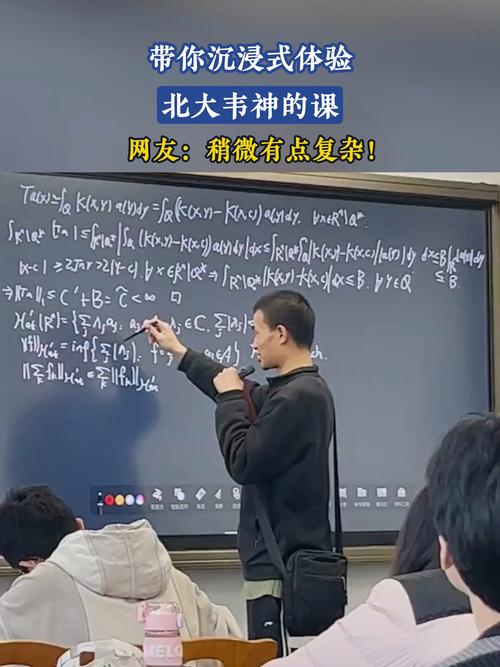 带你沉浸式体验
北大韦神的课
网友：稍微有点复杂！
Ta(x) = ∫_Q K(x,y) a(y)dy = ∫_Q (K(x,y)-K(x,c)) a(y)dy. ∀x∈R^n\Q*.
∫_{R^n\Q*} |Ta| ≤ ∫_{R^n\Q*} |∫_Q (K(x,y)-K(x,c)) a(y)dy| dx ≤ ∫_{R^n\Q*} ∫_Q |K(x,y)-K(x,c)| |a(y)| dy dx ≤ B∫_Q |a(y)|dy
|x-c| ≥ 2|y-c|, ∀x∈R^n\Q* ⇒ ∫_{R^n\Q*} |K(x,y)-K(x,c)|dx ≤ B, ∀y∈Q ≤ B.
⇒ ||Ta||₁ ≤ C' + B = C̃ < ∞ □
(R^n) = {∑_j λ_j a_j : λ_j ∈ C, ∑_j |λ_j| <
= inf {∑_j |λ_j| :
||∑_k f_k|| ≤ ∑_k ||f_k||
MEL